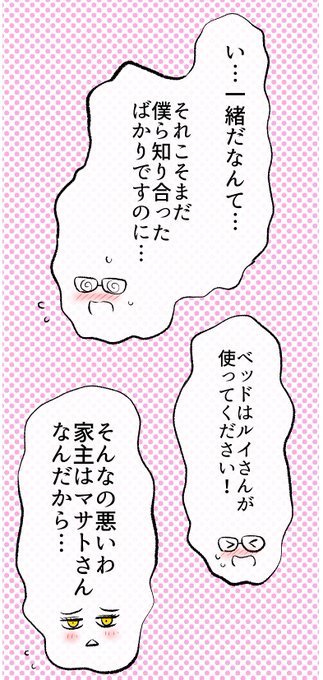 い…一緒だなんて…
それこそまだ
僕ら知り合った
ばかりですのに…
ベッドはルイさんが
使ってください！
そんなの悪いわ
家主はマサトさん
なんだから…